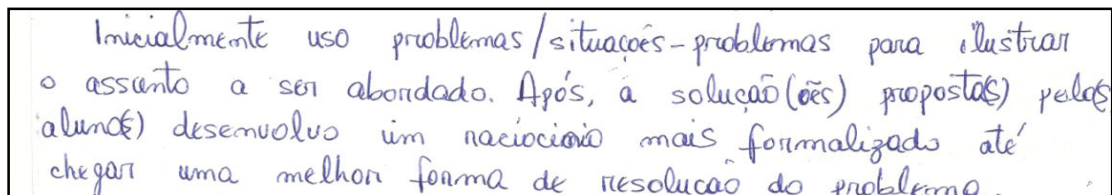 Inicialmente uso problemas/situações-problemas para ilustrar
o assunto a ser abordado. Após, a solução(ões) proposta(s) pelo(s
aluno(s) desenvolvo um raciocinio mais formalizado até
chegar uma melhor forma de resolução do problema.